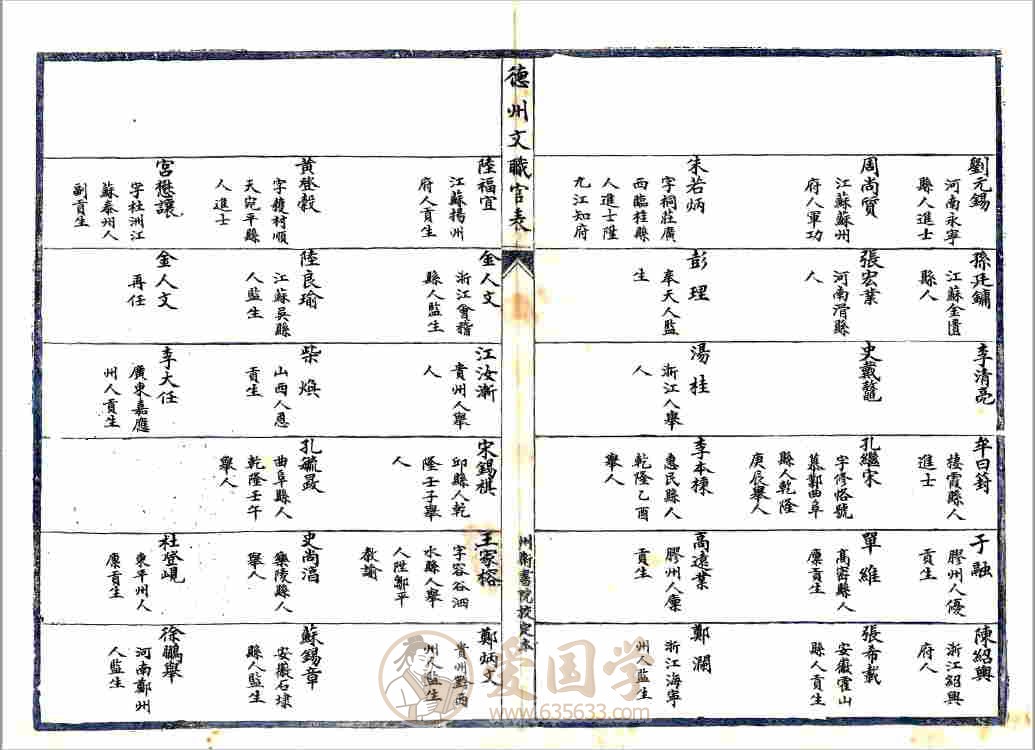 劉元錫
河南永寧
縣人進士
周尚質
江蘇蘇州
府人軍功
朱若炳
字桐莊廣
西臨桂縣
人進士陞
九江知府
孫廷鏞
江蘇金匱
縣人
張宏業
河南滑縣
人
彭理
奉天人監
生
李清亮
史戴鼇
湯桂
浙江人舉
人
牟曰篈
棲霞縣人
進士
孔繼宋
字修恪號
慕鄭曲阜
縣人乾隆
庚辰舉人
李本棟
惠民縣人
乾隆乙酉
舉人
于融
膠州人優
貢生
單維
高密縣人
廩貢生
高遠業
膠州人廩
貢生
陳紹輿
浙江紹興
府人
張希載
安徽霍山
縣人貢生
鄭瀾
浙江海寧
州人監生
德州文職官表
州衛書院校定本
陸福宜
江蘇揚州
府人貢生
黃登穀
字馥村順
天宛平縣
人進士
宮懋讓
字杜洲江
蘇泰州人
副貢生
金人文
浙江會稽
縣人監生
陸良瑜
江蘇吳縣
人監生
金人文
再任
江汝漸
貴州人舉
人
柴煥
山西人恩
貢生
李大任
廣東嘉應
州人貢生
宋錫祺
邱縣人乾
隆壬子舉
人
孔毓晸
曲阜縣人
乾隆壬午
舉人
王家榕
字容谷泗
水縣人舉
人陞鄒平
教諭
史尚滔
樂陵縣人
舉人
杜登峴
東平州人
廩貢生
鄭炳文
貴州黔西
州人監生
蘇錫章
安徽石埭
縣人監生
徐鵬舉
河南鄭州
人監生
爱国学
www.635633.com